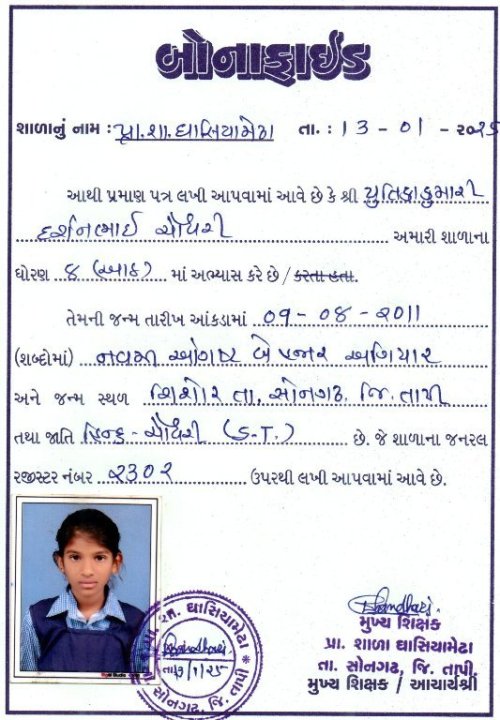 બોનાફાઈડ
શાળાનું નામ : પ્રા.શા. ઘાસિયામેઢા તા. : 13 - 01 - ૨૦૨૫
આથી પ્રમાણ પત્ર લખી આપવામાં આવે છે કે શ્રી યુતિકાકુમારી
દર્શનભાઈ ચૌધરી અમારી શાળાના
ધોરણ ૮ (આઠ) માં અભ્યાસ કરે છે / કરતા હતા.
તેમની જન્મ તારીખ આંકડામાં ૦૧ - ૦૮ - ૨૦11
(શબ્દોમાં) નવમી ઓગષ્ટ બે હજાર અગિયાર
અને જન્મ સ્થળ શિશોર તા. સોનગઢ. જિ. તાપી
તથા જાતિ હિન્દુ - ચૌધરી (S.T.) છે. જે શાળાના જનરલ
રજીસ્ટર નંબર ૨૩૦૨ ઉપરથી લખી આપવામાં આવે છે.
પ્રા. શા. ઘાસિયામેઢા
તા. સોનગઢ, જિ. તાપી
મુખ્ય શિક્ષક
પ્રા. શાળા ઘાસિયામેઢા
તા. સોનગઢ, જિ. તાપી
મુખ્ય શિક્ષક / આચાર્યશ્રી